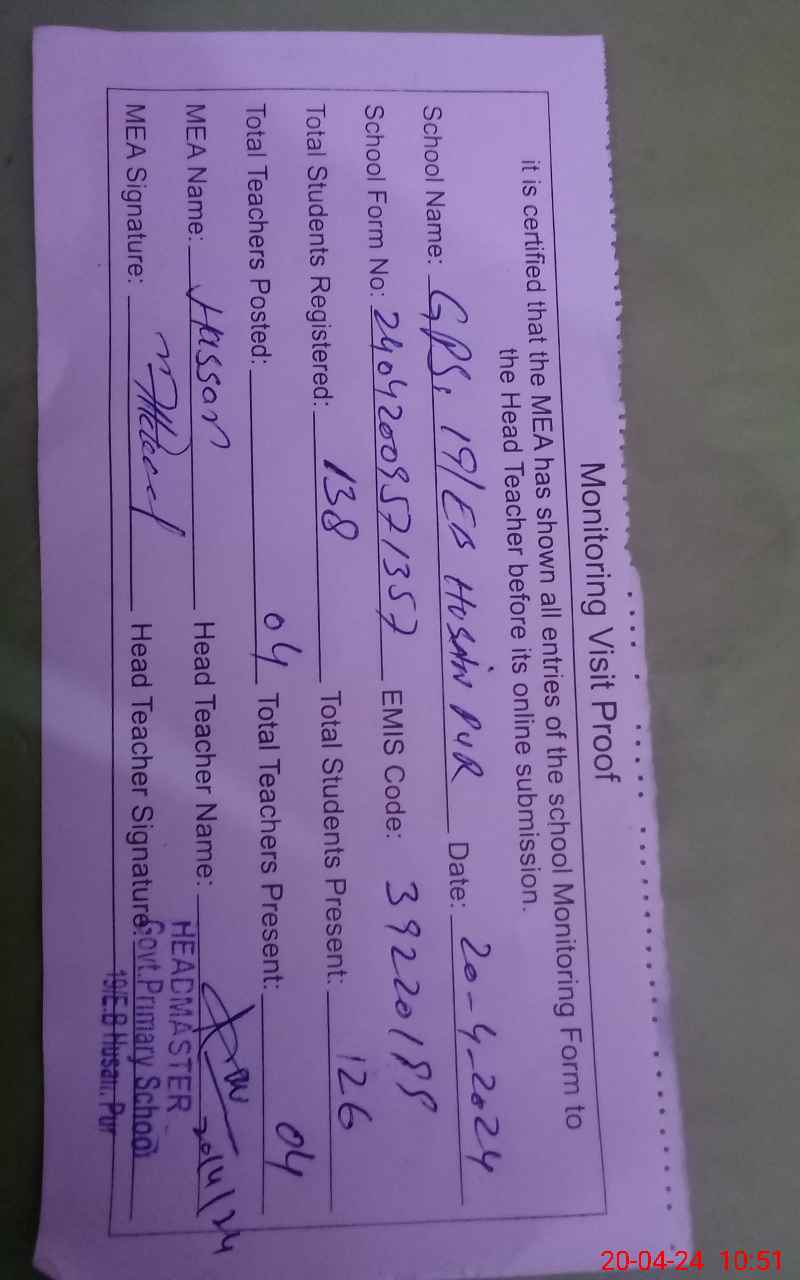 Monitoring Visit Proof
it is certified that the MEA has shown all entries of the school Monitoring Form to
the Head Teacher before its online submission.
School Name: GPS, 19/EB HUSAIN PUR Date: 20-4-2024
School Form No: EMIS Code: 392201
Total Students Registered: 138 Total Students Present: 126
Total Teachers Posted: 04 Total Teachers Present: 04
MEA Name: Hassan Head Teacher Name: 20/4/24
HEADMASTER
MEA Signature: Head Teacher Signature:
Govt.Primary School
19/E.B Husain Pur
20-04-24 10:51